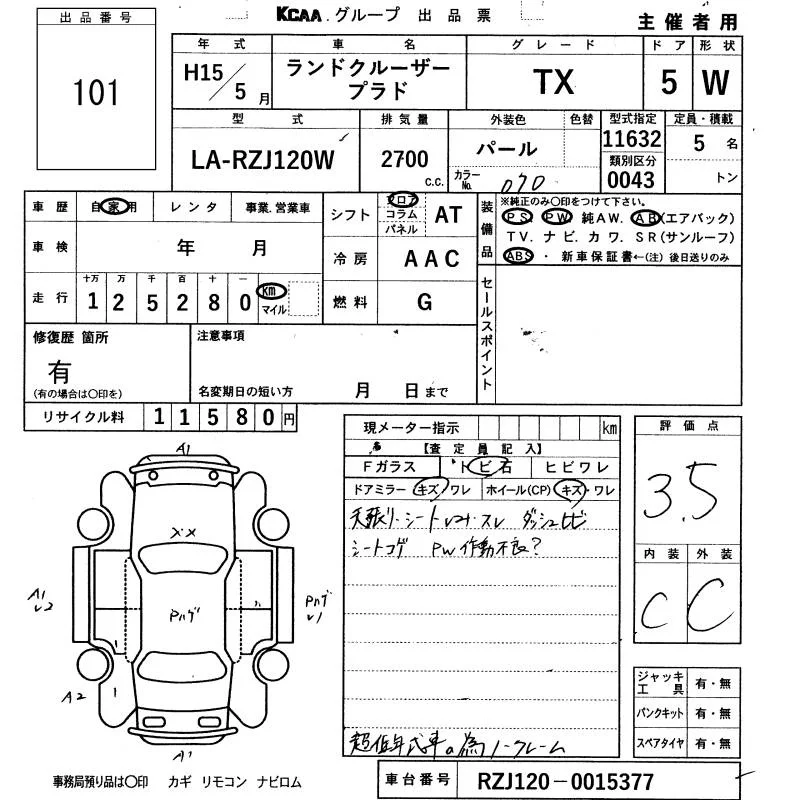 出品番号
101
KCAA グループ 出品票
主催者用
年式 車名 グレード ドア 形状
H15/5月 ランドクルーザープラド TX 5 W
型式 排気量 外装色 色替 型式指定 定員・積載
LA-RZJ120W 2700 c.c. パール カラーNo. 070 11632 5名
類別区分 0043 トン
車歴 自家用 レンタ 事業.営業車
車検 年 月
走行 十万 万 千 百 十 一
1 2 5 2 8 0 km マイル
シフト フロア コラム パネル AT
冷房 AAC
燃料 G
装備品 ※純正のみ〇印をつけて下さい。
PS. PW 純AW. AB(エアバック)
TV. ナビ. カワ. SR(サンルーフ)
ABS ・ 新車保証書←(注) 後日送りのみ
セールスポイント
修復歴 箇所
有
(有の場合は〇印を)
注意事項
名変期日の短い方 月 日まで
リサイクル料 11580円
現メーター指示 km
【査定員記入】
Fガラス トビ石 ヒビワレ
ドアミラー キズ/ワレ ホイール(CP) キズ・ワレ
天張り・シートヨゴレ・スレ ダッシュヒビ
シートコゲ PW作動不良?
超低年式車の為ノークレーム
評価点
3.5
内装 外装
C C
ジャッキ工具 有・無
パンクキット 有・無
スペアタイヤ 有・無
A1
ズメ
A1
Pハゲ
Pハゲ
A2
A1
事務局預り品は〇印 カギ リモコン ナビロム
車台番号 RZJ120-0015377